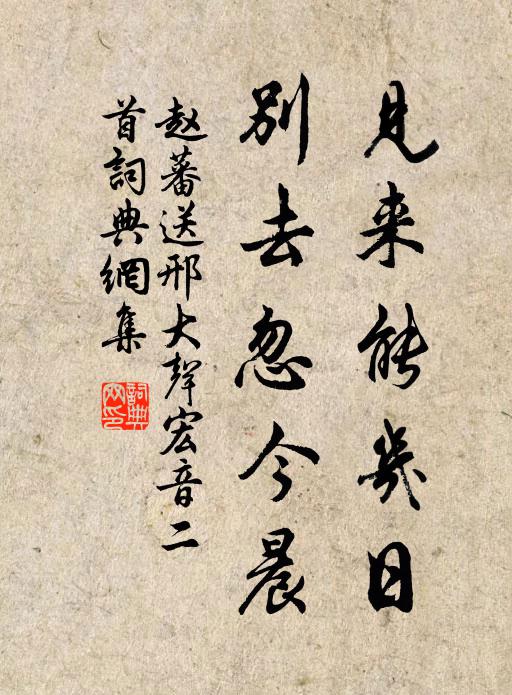 見来能幾日
別去忽今晨
赵蕃送邢大聲宏音二
首詞典網集
詞典
网印